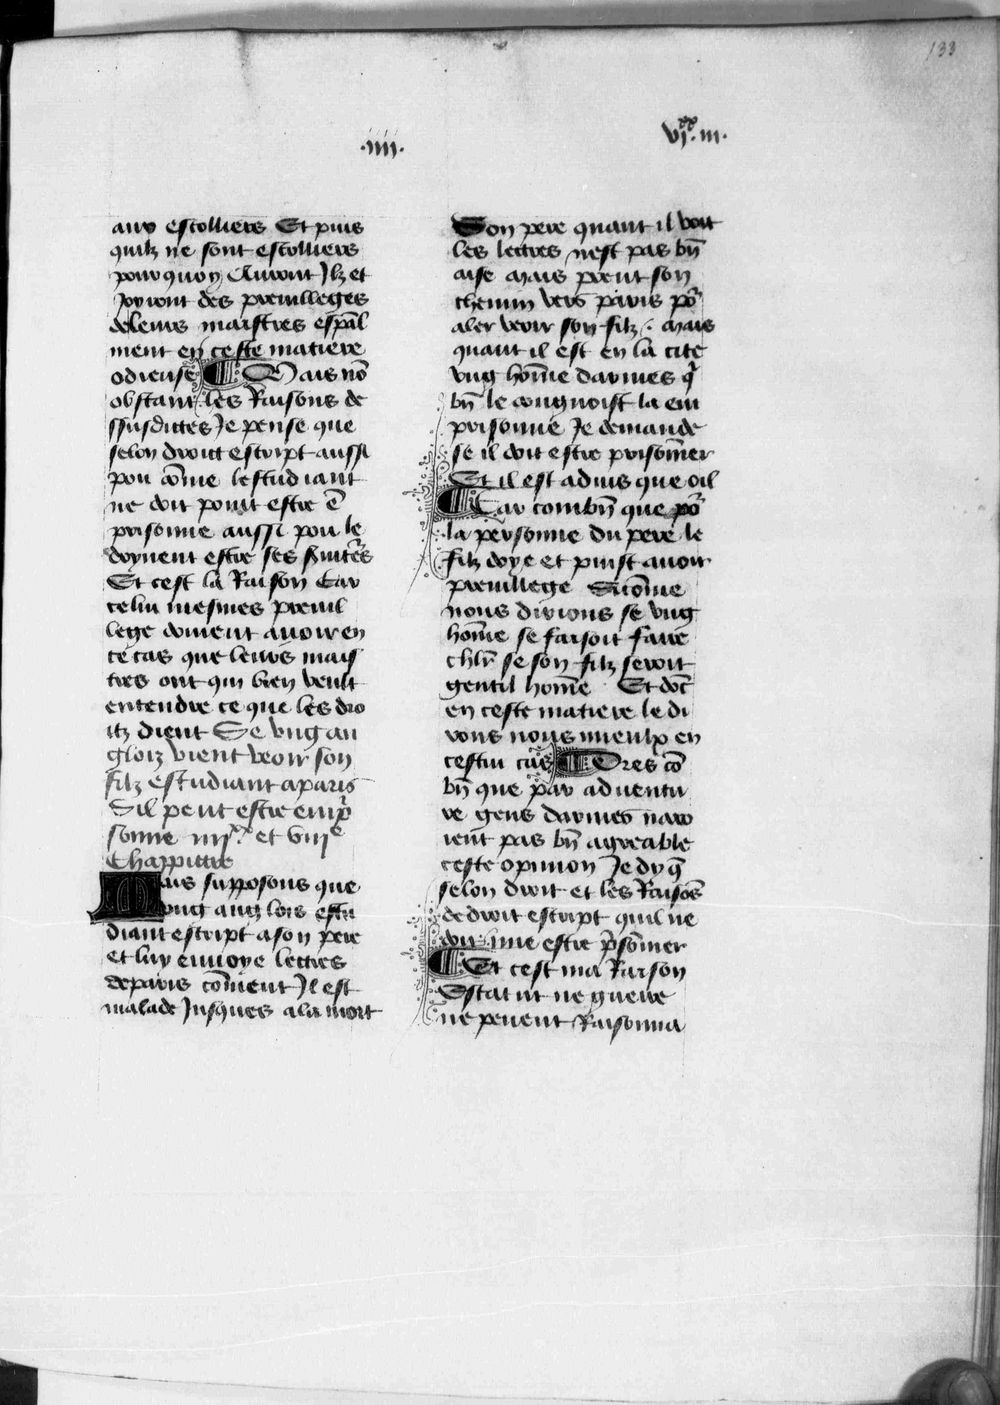 133
.iiii.
vjxx.iii.
aux escolliers Et puis
quilz ne sont escolliers
pour quoy Auront Ilz et
Joyront des preuilleges
de leurs maistres espāl
ment en ceste matiere
odieuse ¶ Mais nō
obstant les Raisons de
ssusdictes Je pense que
selon droict escript aussi
pou cōme lestudiant
ne doit point estre ē
prisonne aussi pou le
doyuent estre ses suites
Et cest la Raison Car
celui mesmes preuil
lege doiuent auoir en
ce cas que leurs mais
tres ont qui bien veult
entendre ce que les dro
itz dient Se vng an
gloiz vient veoir son
filz estudiant a paris
Sil peut estre emp̄
sonne iiiixx et viije
Chappitre
Mais supposons que
vng anglois estu
diant escript a son pere
et luy enuoye lectres
de paris cōment Il est
malade Jusques a la mort
Son pere quant il voit
les lectres nest pas bn̄
aise mais prent son
chemin vers paris po᷑
aler veoir son filz . mais
quant il est en la cite
vng hōme darmes q᷑
bn̄ le congnoist la em
prisonne Je demande
se il doit estre prisōnier
Et il est aduis que oil
¶ Car combn̄ que po᷑
la personne du pere le
filz doye et puist auoir
preuillege Sicōme
nous dirions se vng
hōme se faisoit faire
chlr̄ se son filz seroit
gentil hōme Et dōc
en ceste matiere le di
rons nous mieulx en
cestui cas ¶ Ores cō
bn̄ que par aduentu
re gens darmes naro
ient pas bn̄ agreable
ceste opinion Je dy q̄
selon droit et les Raisōs
de droit escript quil ne
doit mie estre p̄sōnier
¶ Et cest ma Raison
Estat ne guerre
ne peuent Raisonna